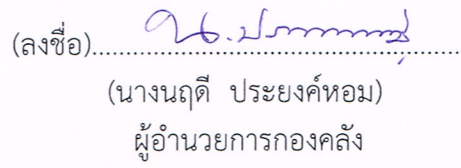 (ลงชื่อ)................................................
(นางนฤดี ประยงค์หอม)
ผู้อำนวยการกองคลัง